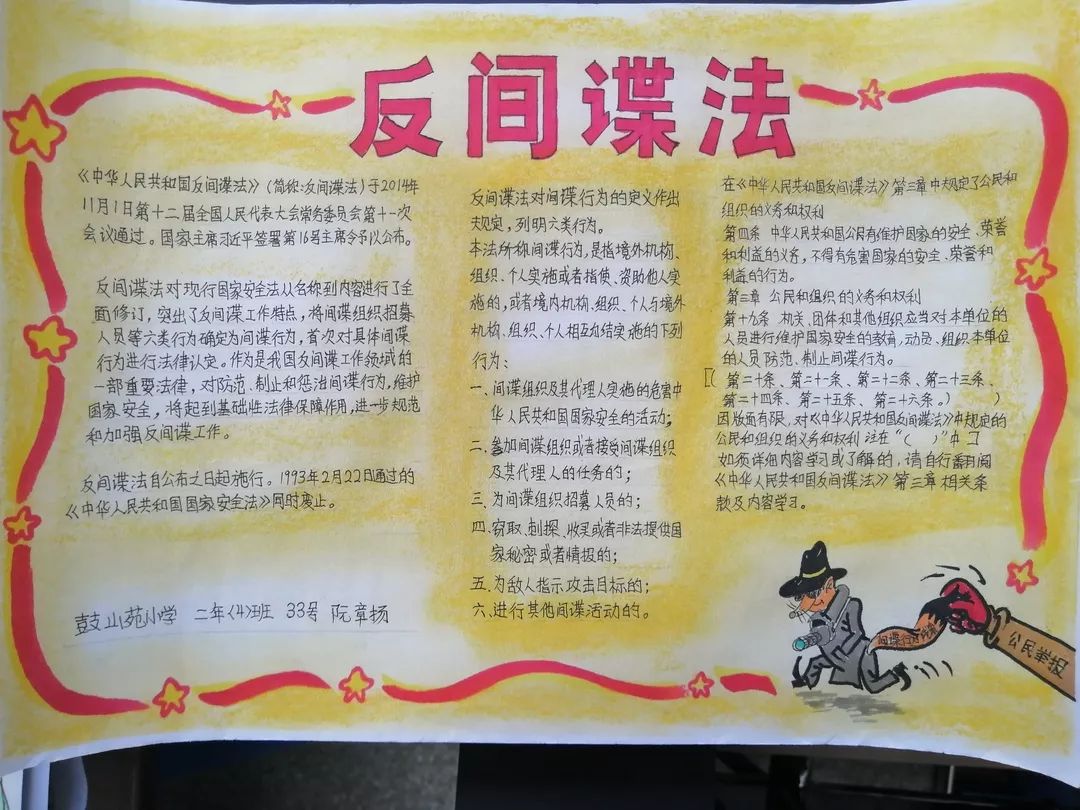 反间谍法
《中华人民共和国反间谍法》(简称:反间谍法)于2014年
11月1日第十二届全国人民代表大会常务委员会第十一次
会议通过。国家主席习近平签署第16号主席令予以公布。
反间谍法对现行国家安全法从名称到内容进行了全
面修订,突出了反间谍工作特点,将间谍组织招募
人员等六类行为确定为间谍行为,首次对具体间谍
行为进行法律认定。作为是我国反间谍工作领域的
一部重要法律,对防范、制止和惩治间谍行为,维护
国家安全,将起到基础性法律保障作用,进一步规范
和加强反间谍工作。
反间谍法自公布之日起施行。1993年2月22日通过的
《中华人民共和国国家安全法》同时废止。
鼓山苑小学 二年(4)班 33号 阮章扬
反间谍法对间谍行为的定义作出
规定,列明六类行为。
本法所称间谍行为,是指境外机构、
组织、个人实施或者指使、资助他人实
施的,或者境内机构、组织、个人与境外
机构、组织、个人相互勾结实施的下列
行为:
一、间谍组织及其代理人实施的危害中
华人民共和国国家安全的活动;
二、参加间谍组织或者接受间谍组织
及其代理人的任务的;
三、为间谍组织招募人员的;
四、窃取、刺探、收买或者非法提供国
家秘密或者情报的;
五、为敌人指示攻击目标的;
六、进行其他间谍活动的。
在《中华人民共和国反间谍法》第三章中规定了公民和
组织的义务和权利
第四条 中华人民共和国公民有维护国家的安全、荣誉
和利益的义务,不得有危害国家的安全、荣誉和
利益的行为。
第三章 公民和组织的义务和权利
第十九条 机关、团体和其他组织应当对本单位的
人员进行维护国家安全的教育,动员、组织本单位
的人员防范、制止间谍行为。
[(第二十条、第二十一条、第二十二条、第二十三条、
第二十四条、第二十五条、第二十六条。)
因版面有限,对《中华人民共和国反间谍法》中规定的
公民和组织的义务和权利 注在“( )”中]
如须详细内容学习或了解的,请自行翻阅
《中华人民共和国反间谍法》第三章相关条
款及内容学习。
间谍行为
公民举报